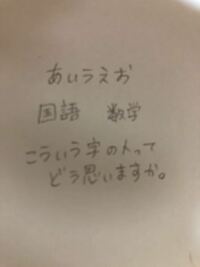 あいうえお
国語　数学
こういう字の人って
どう思いますか。